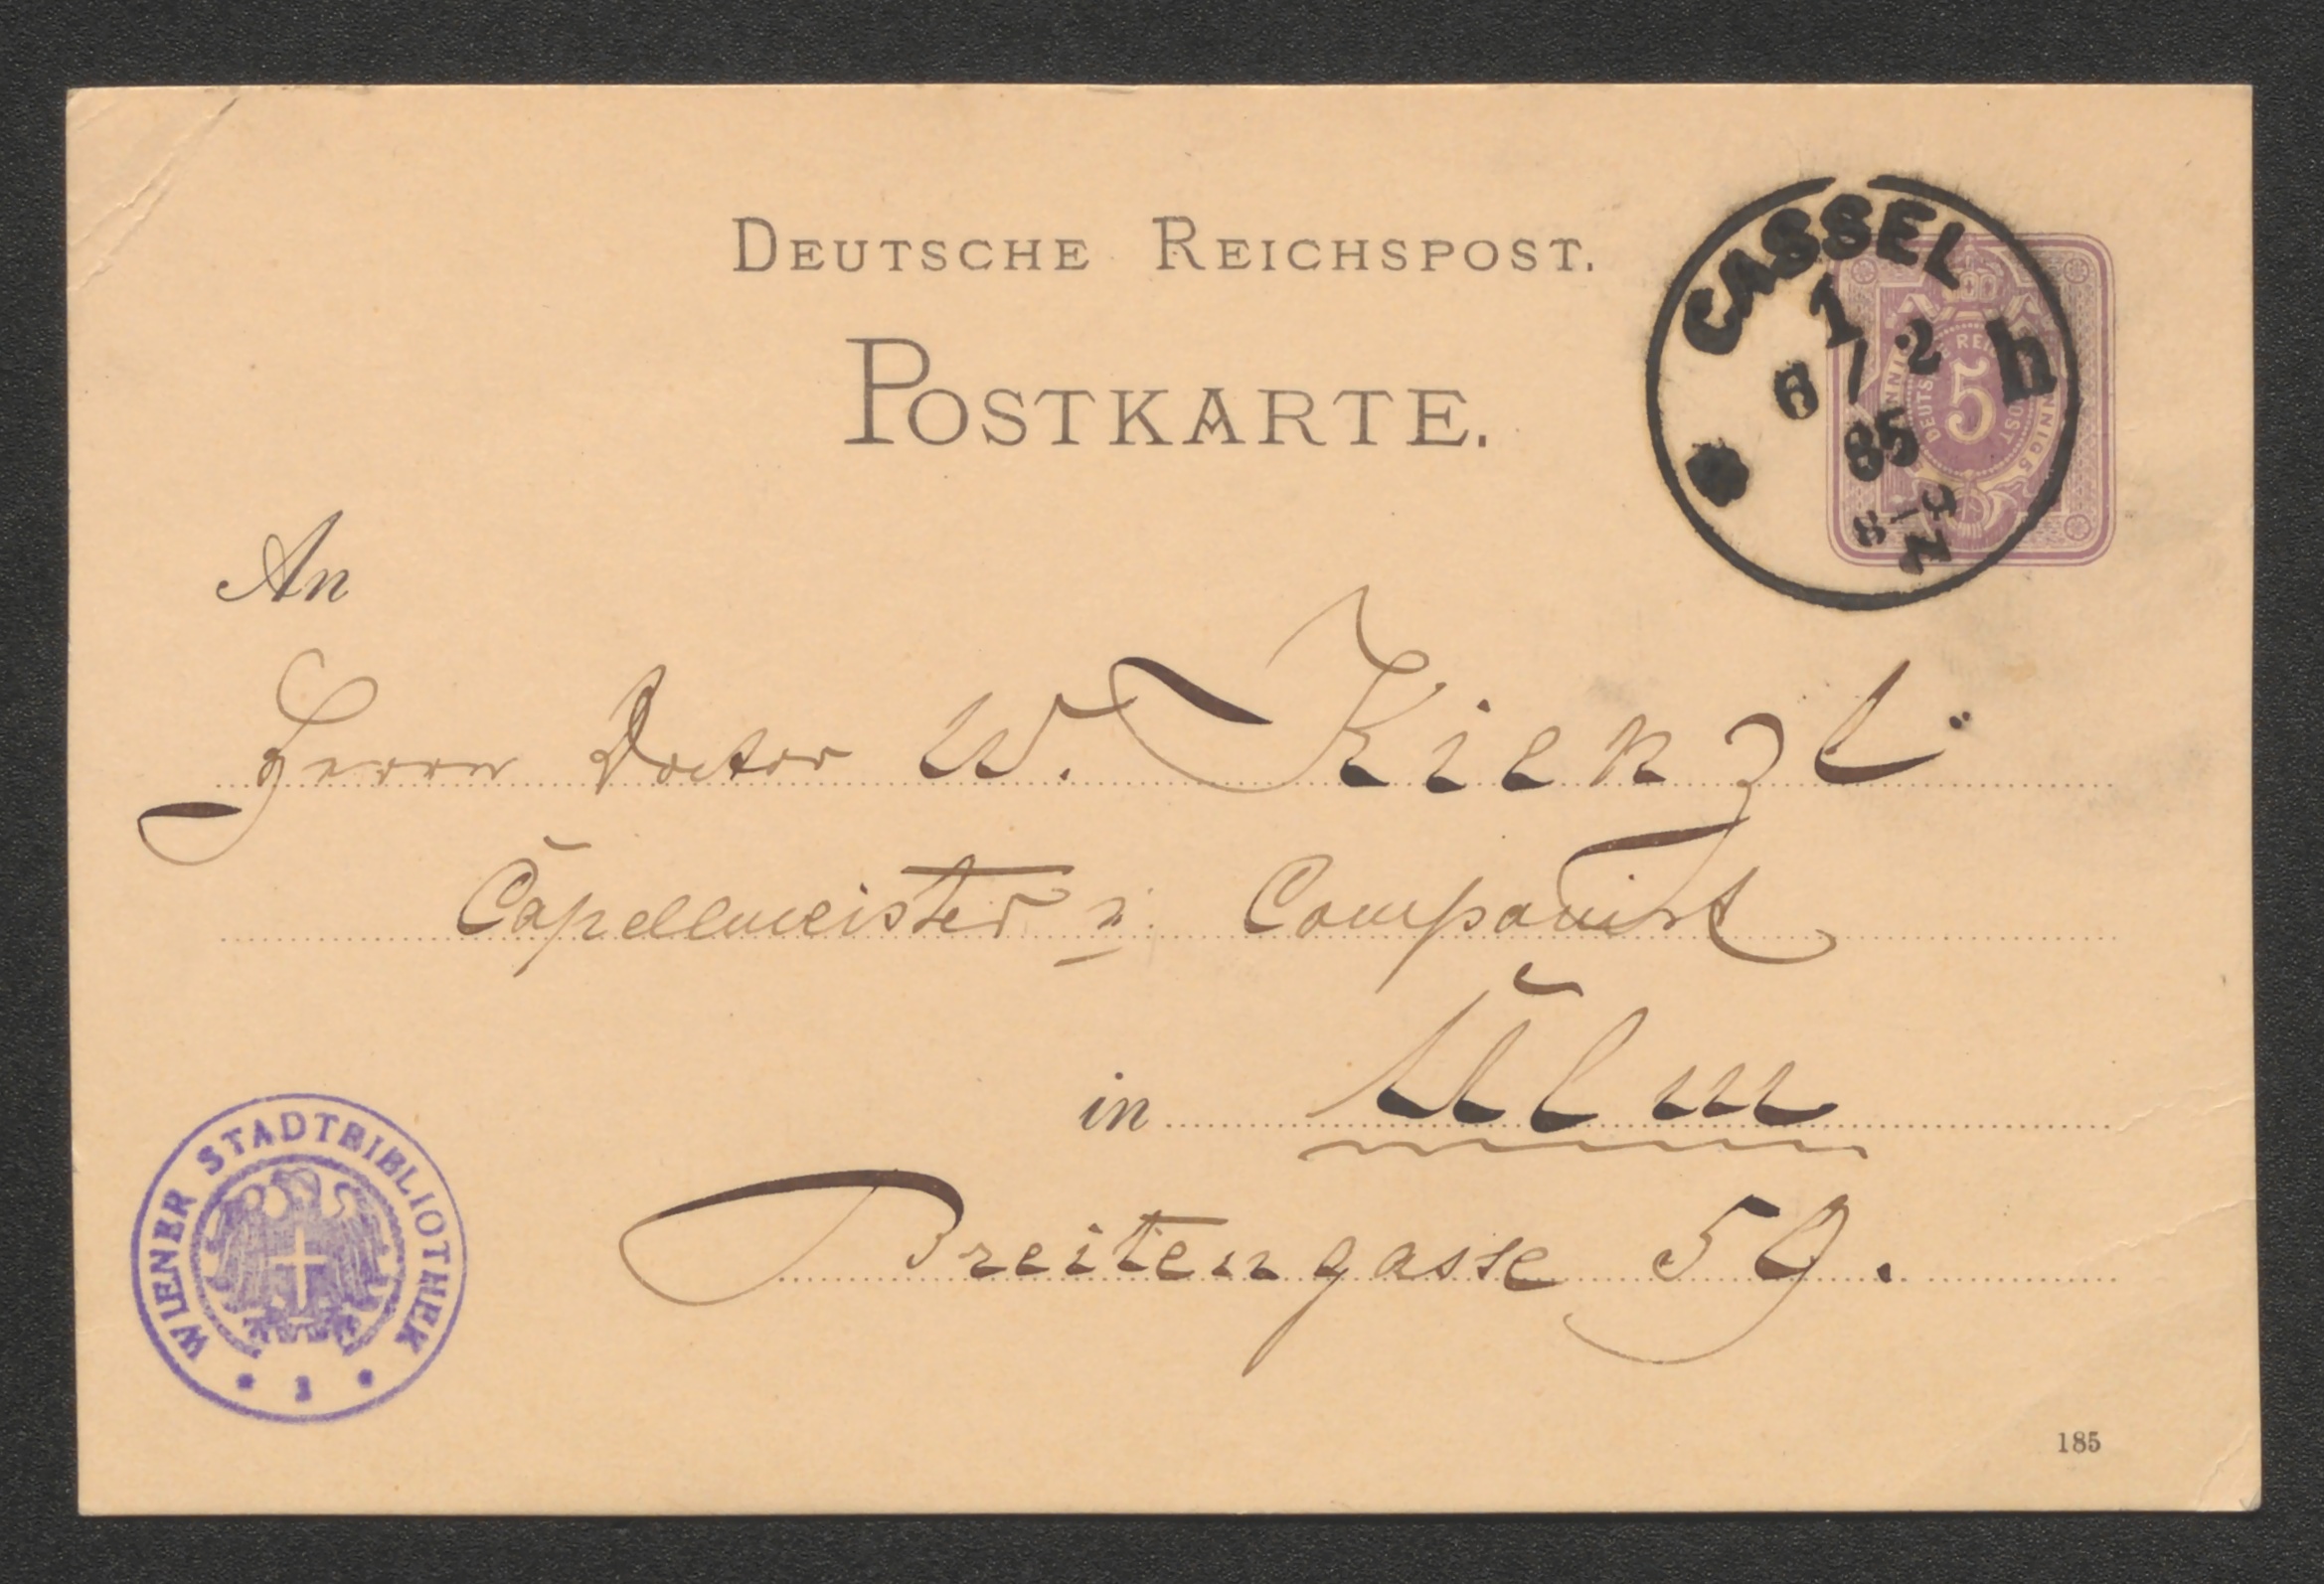 DEUTSCHE REICHSPOST.
POSTKARTE.
CASSEL
1
h
6 / 2
85
8-9
N
5
An
Herrn Doctor W. Kienzl
Capellmeister u. Componist
in Ulm
Breitengasse 59.
WIENER STADTBIBLIOTHEK
185